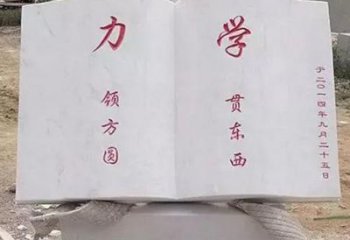 于二〇一四年九月二十五日
学
贯东西
力
领方圆